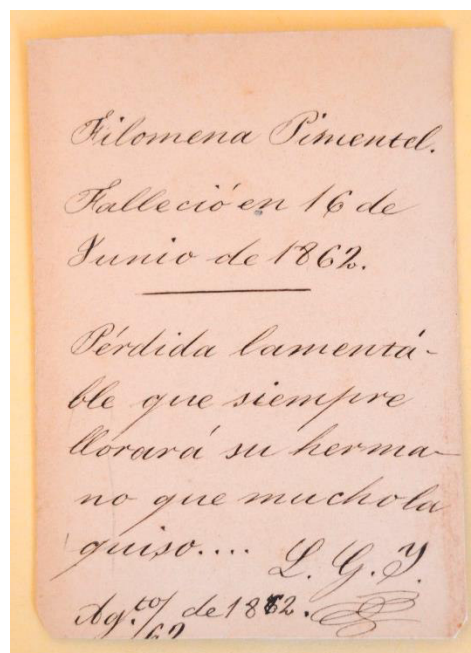 Filomena Pimentel.
Falleció en 16 de
Junio de 1862.
Pérdida lamentá-
ble que siempre
llorará su herma-
no que mucho la
quiso....
L. G. Y.
Ag.to/ de 1862.
62